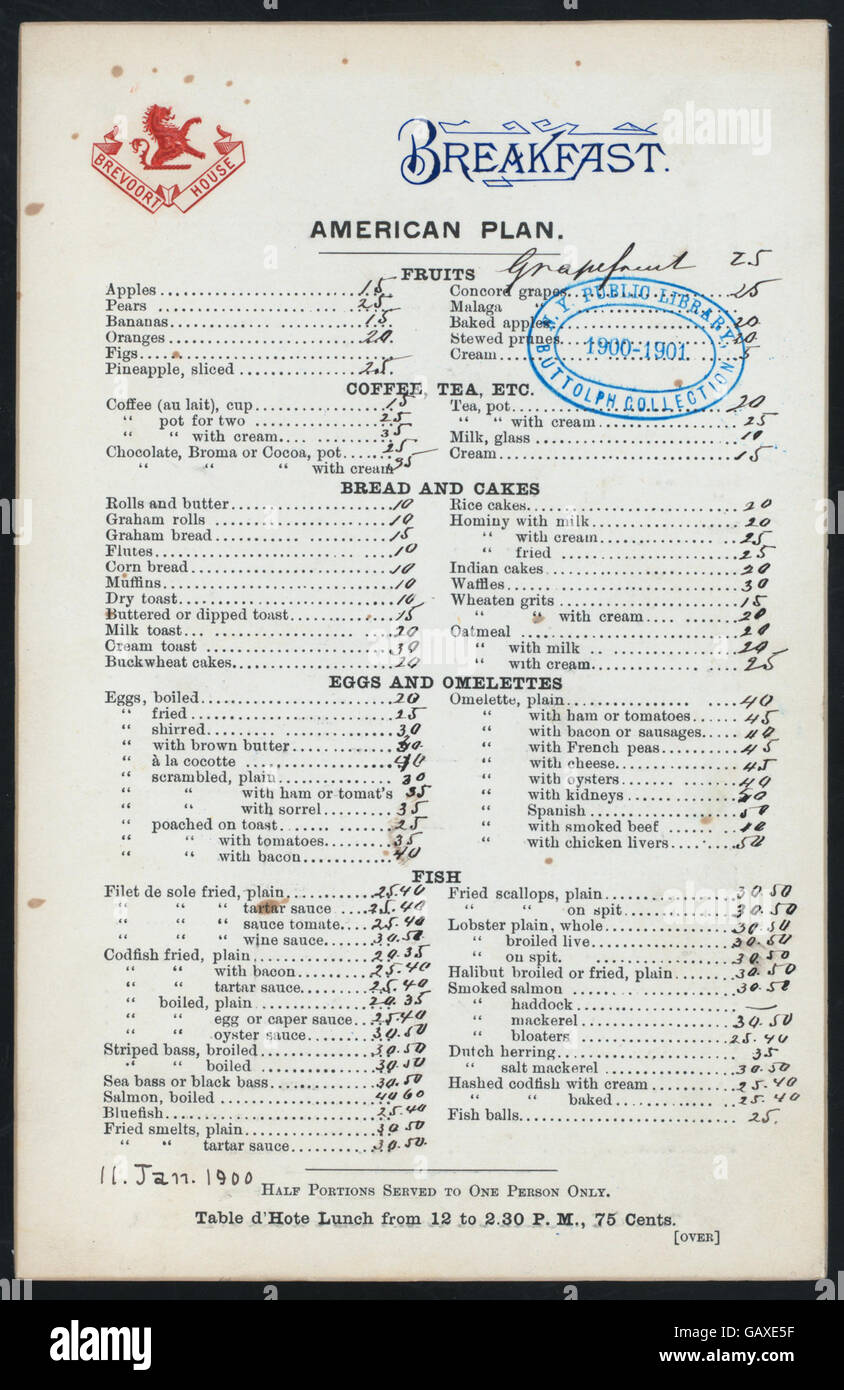 BREVOORT HOUSE
BREAKFAST.
AMERICAN PLAN.
FRUITS
Grapefruit 25
Apples 15
Pears 25
Bananas 15
Oranges 20.
Figs
Pineapple, sliced 25.
Concord grapes 25
Malaga "
Baked apples 20
Stewed prunes 20.
Cream 5
N.Y. PUBLIC LIBRARY,
1900-1901
BUTTOLPH COLLECTION
COFFEE, TEA, ETC.
Coffee (au lait), cup 15
" pot for two 25
" " with cream 35
Chocolate, Broma or Cocoa, pot 25
" " " with cream 35
Tea, pot 20
" " with cream 25
Milk, glass 10
Cream 15
BREAD AND CAKES
Rolls and butter 10
Graham rolls 10
Graham bread 15
Flutes 10
Corn bread 10
Muffins 10
Dry toast 10
Buttered or dipped toast 15
Milk toast 20
Cream toast 30
Buckwheat cakes 20
Rice cakes 20
Hominy with milk 20
" with cream 25
" fried 25
Indian cakes 20
Waffles 30
Wheaten grits 15
" " with cream 20
Oatmeal 20
" with milk 20
" with cream 25
EGGS AND OMELETTES
Eggs, boiled 20
" fried 25
" shirred 30
" with brown butter
" à la cocotte 40
" scrambled, plain 30
" " with ham or tomat's 35
" " with sorrel 35
" poached on toast 25
" " with tomatoes 35
" " with bacon 40
Omelette, plain 40
" with ham or tomatoes 45
" with bacon or sausages 40
" with French peas 45
" with cheese 45
" with oysters 40
" with kidneys
" Spanish 50
" with smoked beef
" with chicken livers 50
FISH
Filet de sole fried, plain 25.40
" " " tartar sauce 25.40
" " " sauce tomate 25.40
" " " wine sauce 30.50
Codfish fried, plain 20.35
" " with bacon 25.40
" " tartar sauce 25.40
" boiled, plain 20.35
" " egg or caper sauce 25.40
" " oyster sauce 30.50
Striped bass, broiled 30.50
" " boiled 30.50
Sea bass or black bass 30.50
Salmon, boiled 40 60
Bluefish 25.40
Fried smelts, plain 30.50
" " tartar sauce 30.50.
Fried scallops, plain 30.50
" " on spit 30.50
Lobster plain, whole 30.50
" broiled live 30.50
" on spit. 30.50
Halibut broiled or fried, plain 30.50
Smoked salmon 30.50
" haddock —
" mackerel 30.50
" bloaters 25.40
Dutch herring 35
" salt mackerel 30.50
Hashed codfish with cream 25.40
" " baked 25.40
Fish balls 25.
11. Jan. 1900
HALF PORTIONS SERVED TO ONE PERSON ONLY.
Table d'Hote Lunch from 12 to 2.30 P. M., 75 Cents.
[OVER]
alamy
a
a
alamy
Image ID: GAXE5F
www.alamy.com